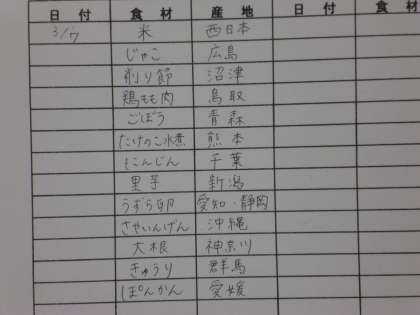 日付 食材 産地 日付 食材
3/7 米 西日本
じゃこ 広島
削り節 沼津
鶏もも肉 鳥取
ごぼう 青森
たけのこ水煮 熊本
にんじん 千葉
里芋 新潟
うずら卵 愛知・静岡
さやいんげん 沖縄
大根 神奈川
きゅうり 群馬
ぽんかん 愛媛